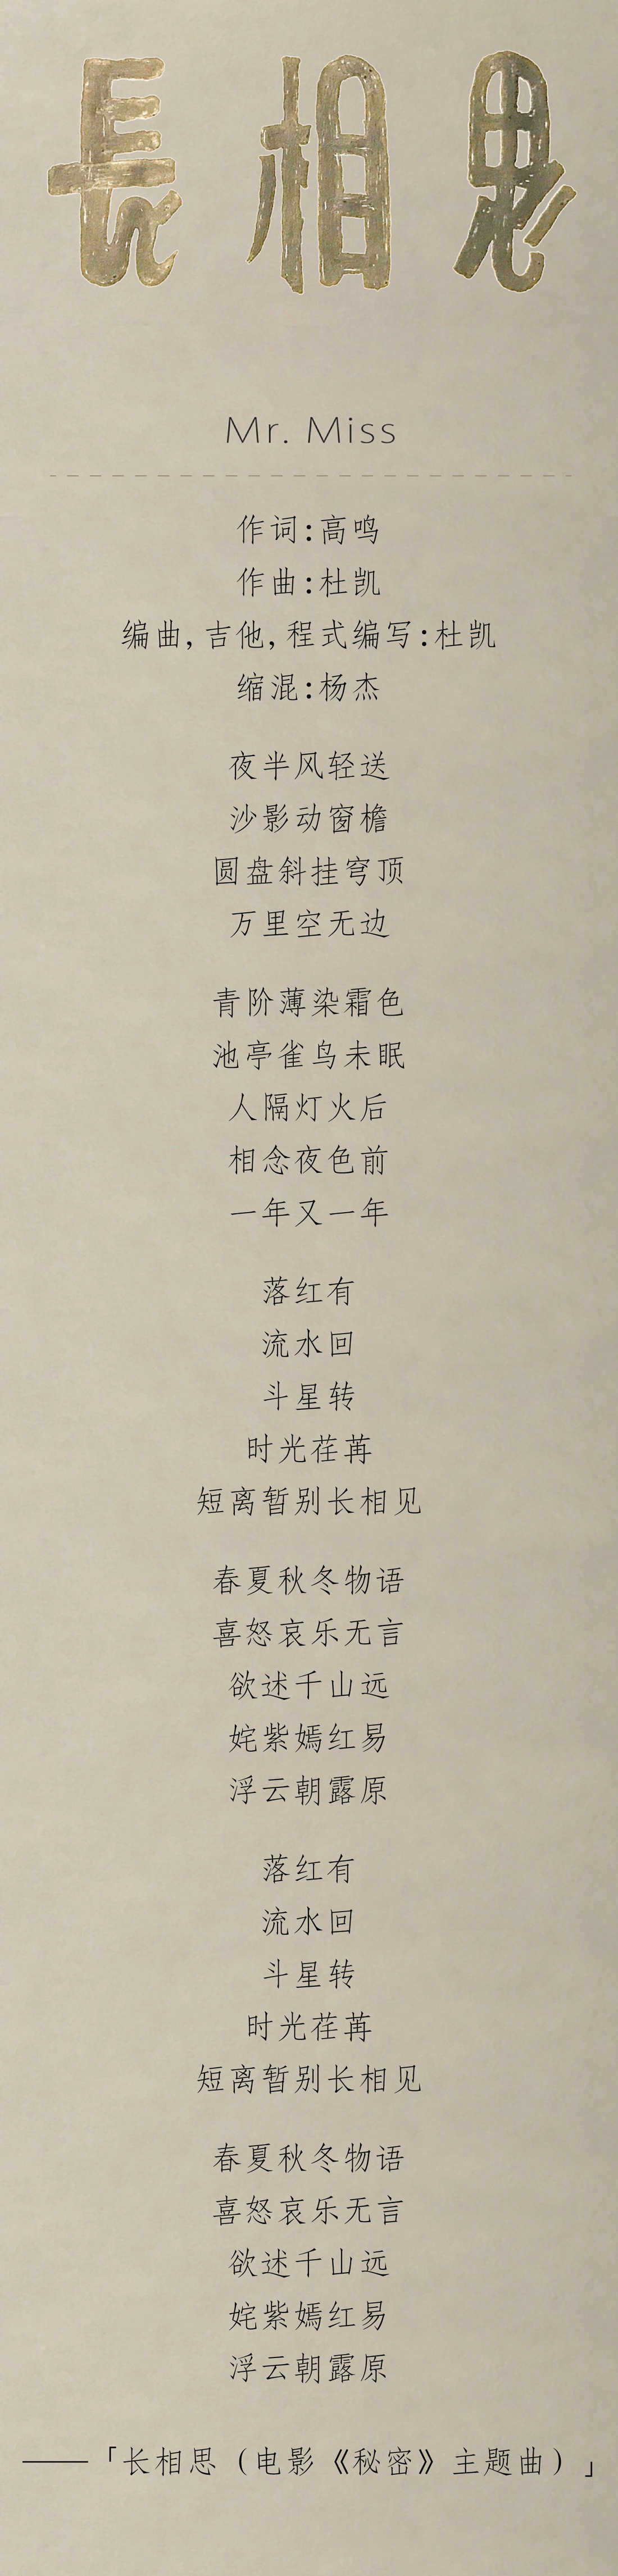 長相思
Mr. Miss
作词:高鸣
作曲:杜凯
编曲,吉他,程式编写:杜凯
缩混:杨杰
夜半风轻送
沙影动窗檐
圆盘斜挂穹顶
万里空无边
青阶薄染霜色
池亭雀鸟未眠
人隔灯火后
相念夜色前
一年又一年
落红有
流水回
斗星转
时光荏苒
短离暂别长相见
春夏秋冬物语
喜怒哀乐无言
欲述千山远
姹紫嫣红易
浮云朝露原
落红有
流水回
斗星转
时光荏苒
短离暂别长相见
春夏秋冬物语
喜怒哀乐无言
欲述千山远
姹紫嫣红易
浮云朝露原
——「长相思（电影《秘密》主题曲）」